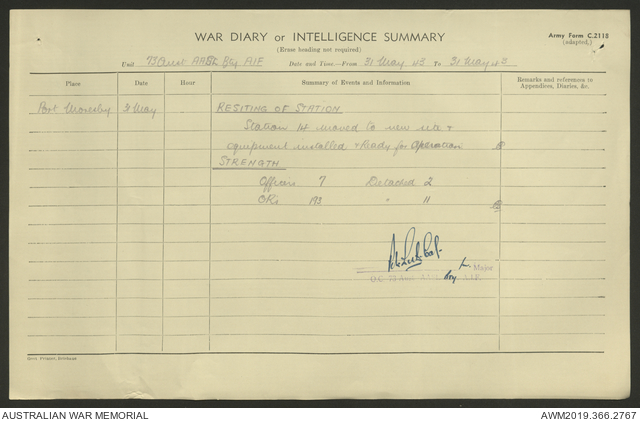 WAR DIARY or INTELLIGENCE SUMMARY
(Erase heading not required)
Army Form C.2118
(adapted)
Unit 73 Aust AASL Bty, AIF Date and Time—From 31 May 43 To 31 May 43
Place Date Hour Summary of Events and Information Remarks and references to Appendices, Diaries, &c.
Port Moresby 31 May RESITING OF STATION
Station 14 moved to new site &
equipment installed & Ready for Operation
STRENGTH
Officers 7 Detached 2
ORs 193 " 11
Major
O.C. 73 Aust Bty A.I.F.
Govt. Printer, Brisbane
AUSTRALIAN WAR MEMORIAL
AWM2019.366.2767